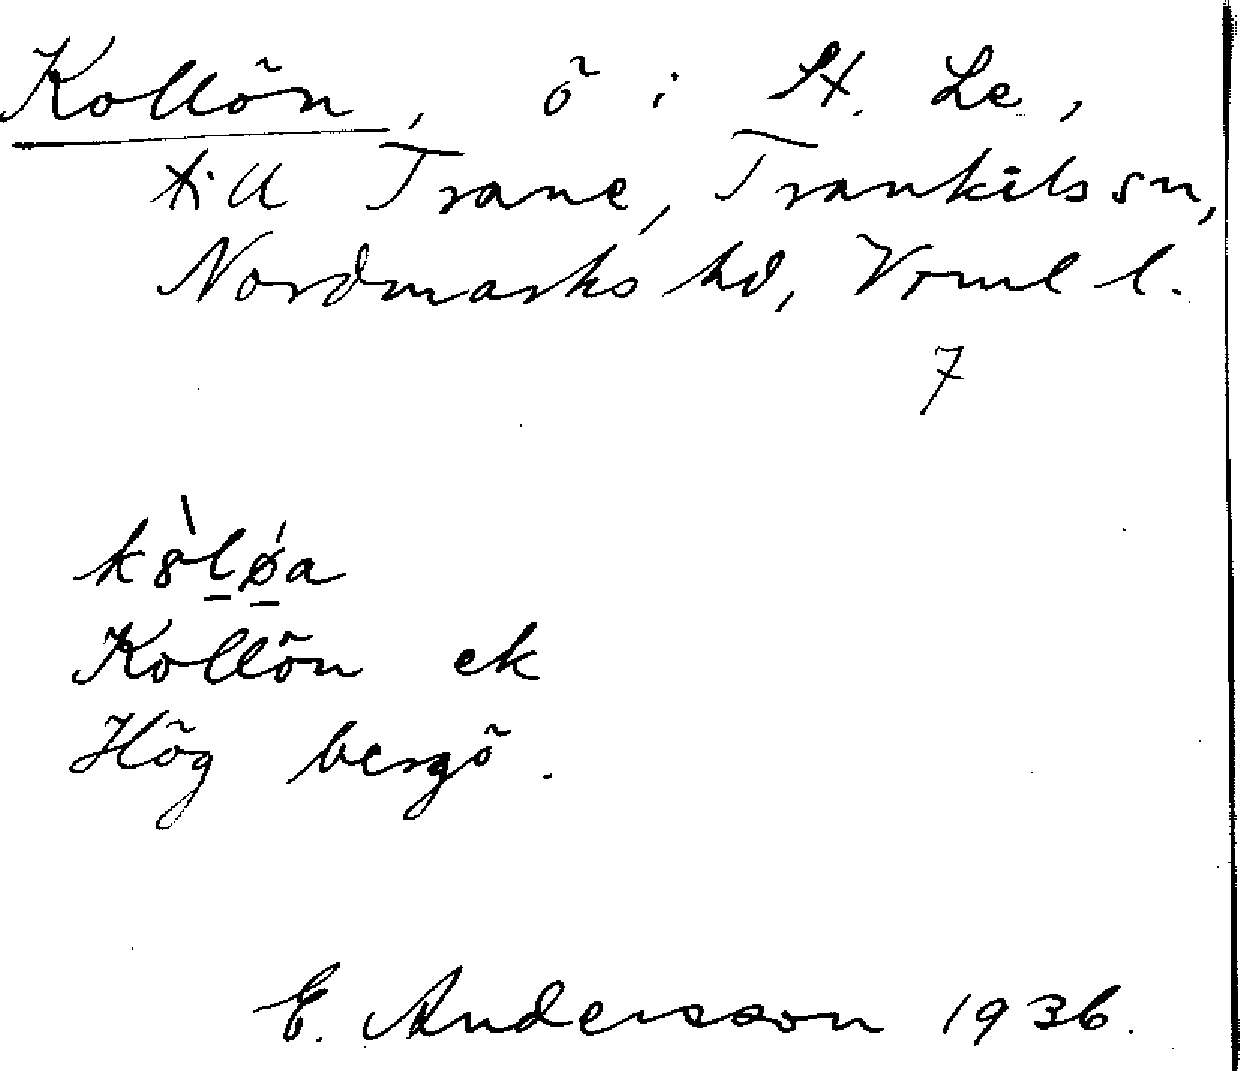 Kollön, ö i St. Le,
till Trane, Trankils sn,
Nordmarks hd, Vrml l.
7
Kollön ek
Hög bergö.
E. Andersson 1936.